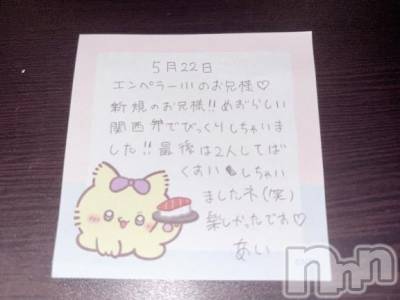 5月22日
エンペラー111のお兄様♡
新規のお兄様!!めずらしい
関西弁でびっくりしちゃいま
した!!最後は2人してばく
すいしちゃい
ましたネ(笑)
楽しかったです♡
あい